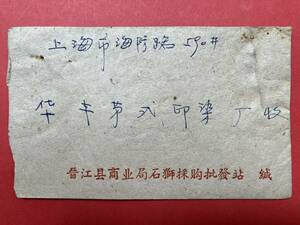 上海市海防路590#
华丰第弍印染厂收
晋江县商业局石獅採购批發站 缄